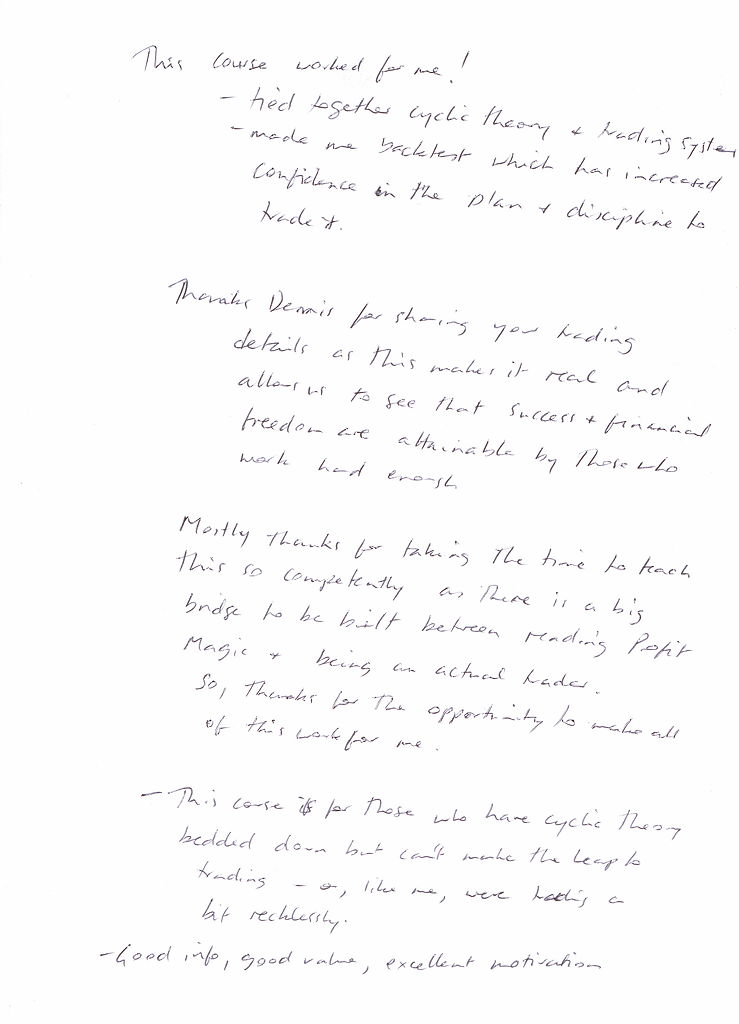 This course worked for me!
- tied together cyclic theory + trading system
- made me backtest which has increased
confidence in the plan + discipline to
trade it.
Thanks Dennis for sharing your trading
details as this makes it real and
allows us to see that success + financial
freedom are attainable by those who
work hard enough
Mostly thanks for taking the time to teach
this so competently as there is a big
bridge to be built between reading Profit
Magic + being an actual trader.
So, thanks for the opportunity to make all
of this work for me.
- This course is for those who have cyclic theory
bedded down but can't make the leap to
trading - or, like me, were trading a
bit recklessly.
- Good info, good value, excellent motivation